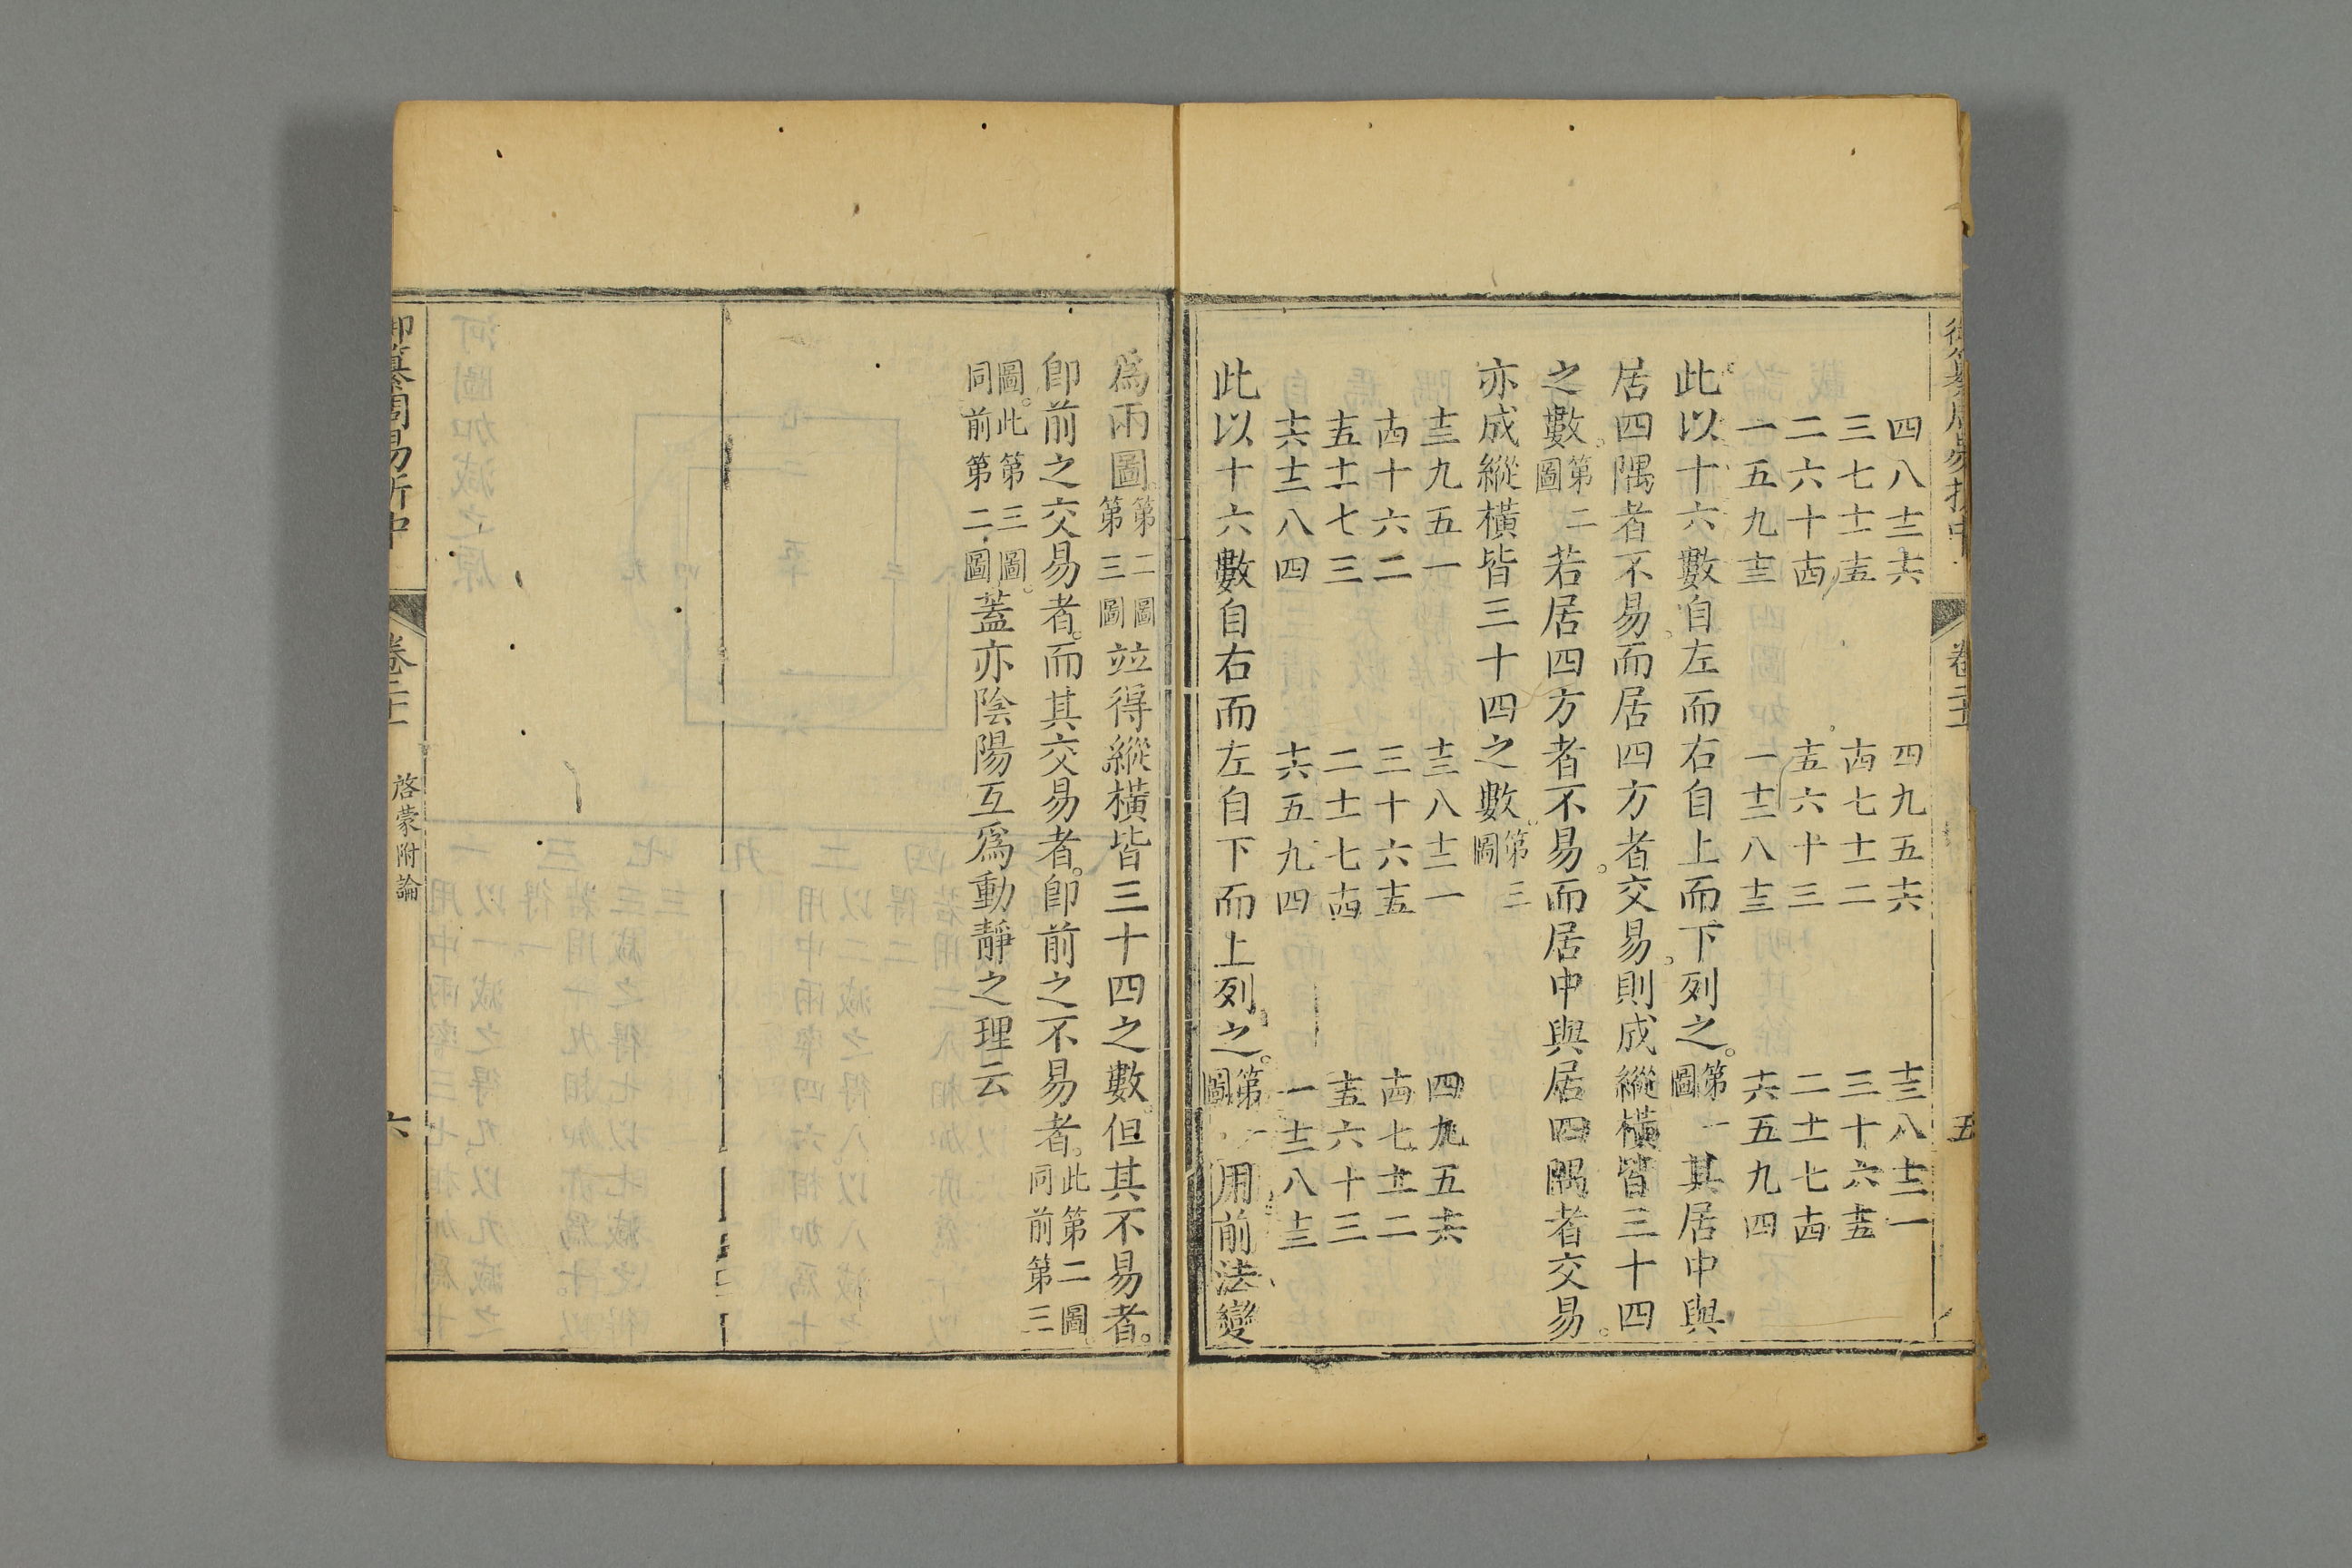 御纂周易折中 卷二十一 五
四八十二十六 四九五十六 十三八十二一
三七十一十五 十四七十一二 三十六十五
二六十十四 十五六十三 二十一七十四
一五九十三 一十二八十三 十六五九四
此以十六數自左而右自上而下列之。第一圖其居中與
居四隅者不易。而居四方者交易。則成縱橫皆三十四
之數。第二圖若居四方者不易。而居中與居四隅者交易。
亦成縱橫皆三十四之數。第三圖
十三九五一 十三八十二一 四九五十六
十四十六二 三十六十五 十四七十一二
十五十一七三 二十一七十四 十五六十三
十六十二八四 十六五九四 一十二八十三
此以十六數自右而左自下而上列之。第一圖用前法變
爲兩圖。第二圖第三圖竝得縱橫皆三十四之數。但其不易者。
卽前之交易者。而其交易者。卽前之不易者。此第二圖。同前第三
圖。此第三圖。同前第二圖蓋亦陰陽互爲動靜之理云
御纂周易折中 卷二十一 啓蒙附論 六